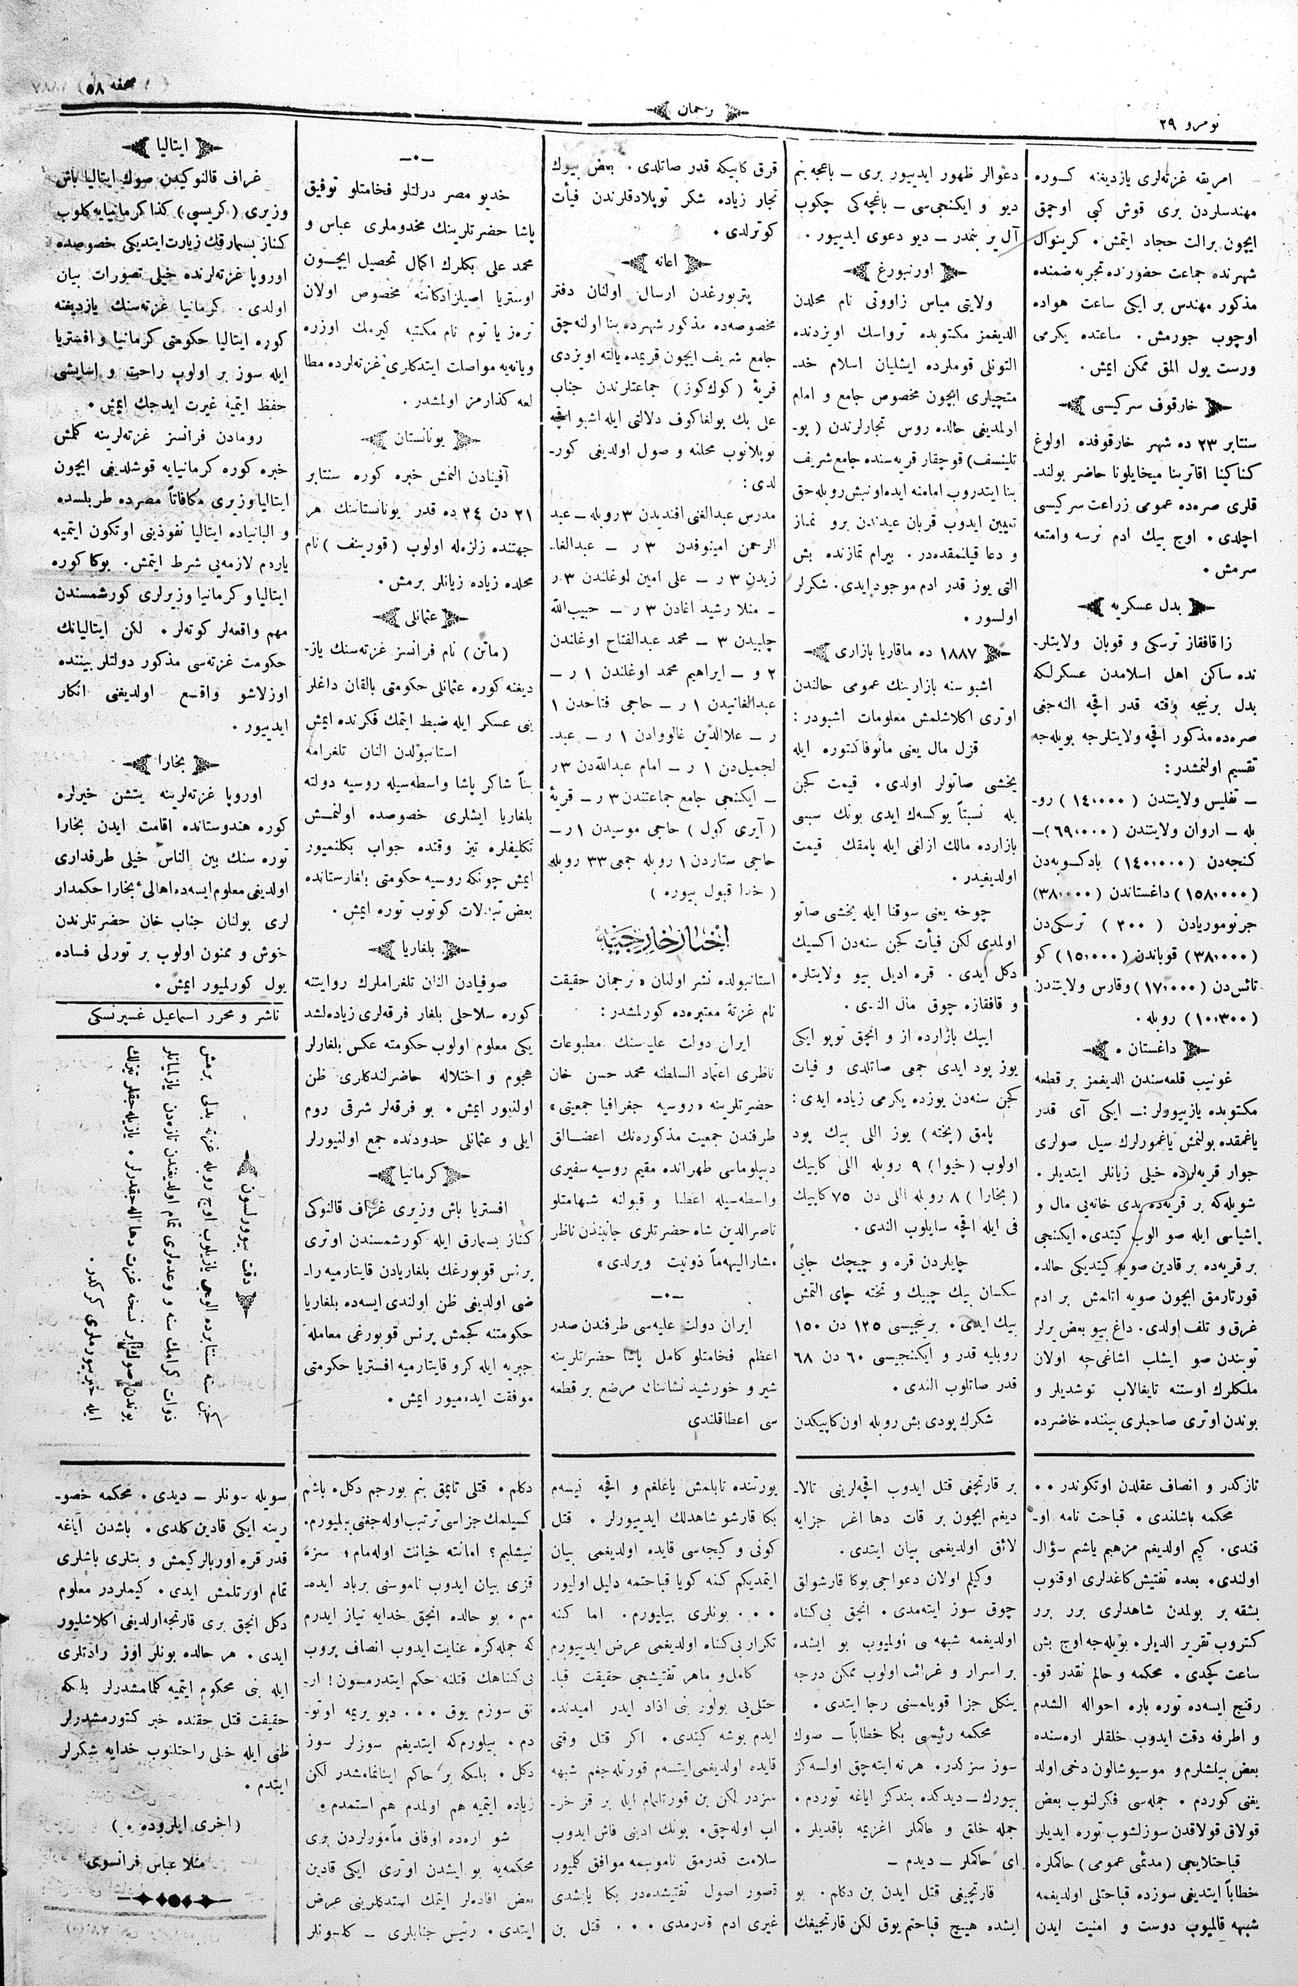 نومرو ٢٩
ترجمان
صحفه ٥٨
امریقه غزته‌لری یازدیغنه کوره
مهندسلردن بری قوش کبی اوچمق
ایچون برالت حجاد ایتمش. کرینوال
شهرنده جماعت حضورنده تجربه ضمنده
مذکور مهندس بر ایکی ساعت هواده
اوچوب جورمش. ساعتده یکرمی
ورست یول المق ممکن ایمش.
خارقوف سرکیسی
سنتابر ٢٣ ده شهر خارقوفده اولوغ
کناکینا اقاترینا میخایلونا حاضر بولند-
قلری صره‌ده عمومی زراعت سرکیسی
اچلدی. اوچ بیك ادم نرسه وامتعه
سرمش.
بدل عسکریه
زاقافقاز ترسکی و قوبان ولایتلر-
نده ساکن اهل اسلامدن عسکرلکه
بدل برنیجه وقته قدر اقچه النه‌جغی
صره‌ده مذکور اقچه ولایتلرجه بویله‌جه
تقسیم اولنمشدر:
— تفلیس ولایتندن (١٤٠٠٠٠) رو-
بله — اروان ولایتندن (٦٩٠٠٠)—
کنجه‌دن (١٤٠٠٠٠) بادکوبه‌دن
(١٥٨٠٠٠) داغستاندن (٣٨٠٠٠)
جرنوموریادن (٣٠٠) ترسکی‌دن
(٣٨٠٠٠) قوباندن (١٥٠٠٠) کو
تائس‌دن (١٧٠٠٠) وقارس ولایتندن
(١٠٣٠٠) روبله.
داغستان
غونیب قلعه‌سندن الدیغمز بر قطعه
مکتوبده یازییولر:— ایکی آی قدر
یاغمقده بولنمش یاغمورلرك سیل صولری
جوار قریه‌لرده خیلی زیانلر ایتدیلر.
شویله‌که بر قریه‌ده یدی خانه‌یی مال و
اشیاسی ایله صو الوب کیتدی. ایکنجی
بر قریه‌ده بر قادین صویه کیتدیکی حالده
قورتارمق ایچون صویه اتلمش بر ادم
غرق و تلف اولدی. داغ بیو بعض یرلر
توبندن صو ایشلب اشاغی‌جه اولان
ملکلرك اوستنه تایغالاب توشدیلر و
بوندن اوتری صاحبلری بیننده خاضرده
دعوالر ظهور ایدییور بری — باغچه بنم
دیو و ایکنجی‌سی — باغچه‌کی چکوب
آل یر بنمدر — دیو دعوی ایدییور.
اورنبورغ
ولایتی میاس زاووتی نام محلدن
الدیغمز مکتوبده ترواسك اوزدنده
التونلی قوملرده ایشلیان اسلام خد-
متچیلری ایچون مخصوص جامع و امام
اولمدیغی حالده روس تجارلرندن (پو-
تلینسف) قوچقار قریه‌سنده جامع شریف
بنا ایتدروب امامنه ایده اونبش روبله حق
تعیین ایدوب قربان عیدندن برو نماز
و دعا قیلنمقده‌در. بیرام نمازنده بش
التی یوز قدر ادم موجود ایدی. شکرلر
اولسور.
١٨٨٧ ده ماقاریا بازاری
اشبو سنه بازارینك عمومی حالندن
اوتری اکلاشلمش معلومات اشبودر:
قزل مال یعنی مانوفاکتوره ایله
یخشی صاتولر اولدی. قیمت کچن
یله نسبتاً یوکسه‌ك ایدی بونك سببی
بازارده مالك ازلغی ایله پامقك قیمت
اولدیغیدر.
چوخه یعنی سوقنا ایله یخشی صاتو
اولمدی لکن فیأت کچن سنه‌دن اکسیك
دکل ایدی. قره ادیل بیو ولایتلره
و قافقازه چوق مال الندی.
ایپك بازارده از و انچق توپو ایکی
یوز پود ایدی جمی صاتلدی و فیات
کچن سنه‌دن یوزده یکرمی زیاده ایدی:
پامق (پخته) یوز اللی بیك پود
اولوب (خیوا) ٩ روبله اللی کاپیك
(بخارا) ٨ روبله اللی دن ٧٥ کاپیك
فی ایله اقچه سایلوب الندی.
چایلردن قره و چیچك جایی
سکسان بیك چیبك و تخته چای التمش
بیك ایدی. برنجیسی ١٢٥ دن ١٥٠
روبلیه قدر و ایکنجیسی ٦٠ دن ٦٨
قدر صاتلوب الندی.
شکرك پودی بش روبله اون کاپیکدن
قرق کاپیکه قدر صاتلدی. بعض بیوك
تجار زیاده شکر توپلادقلرندن فیأت
کوترلدی.
اعانه
پتربورغدن ارسال اولنان دفتر
مخصوصه‌ده مذکور شهرده بنا اولنه‌جق
جامع شریف ایچون قریمده یالته اویزدی
قریهٔ (کوك‌کوز) جماعتلرندن جناب
علی بك بولغاکوف دلالتی ایله اشبو اقچه
توپلانوب محلنه و صول اولدیغی کور-
لدی:
مدرس عبدالغنی افندیدن ٣ روبله — عبد
الرحمن امینوفدن ٣ ر — عبدالغا-
زیدن ٣ ر — علی امین لوغلندن ٣ ر
— منلا رشید اغادن ٣ ر — حبیب‌الله
چلبیدن ٣ — محمد عبدالفتاح اوغلندن
٢ و — ابراهیم محمد اوغلندن ١ ر —
عبدالغانیدن ١ ر — حاجی فتاحدن ١
ر — علاالدین غالووادن ١ ر — عبد-
لجمیل‌دن ١ ر — امام عبدالله‌دن ٣ ر
— ایکنجی جامع جماعتندن ٣ ر — قریهٔ
(آیری کول) حاجی موسیدن ١ ر —
حاجی ستاردن ١ روبله جمعی ٣٣ روبله
(خدا قبول بیوره)
اخبار خارجیه
استانبولده نشر اولنان «ترجمان حقیقت»
نام غزتهٔ معتبره‌ده کورلمشدر:
ایران دولت علیه‌سنك مطبوعات
ناظری اعتماد السلطنه محمد حسن خان
حضرتلرینه «روسیه جغرافیا جمعیتی»
طرفندن جمعیت مذکوره‌نك اعضالق
دیپلوماسی طهرانده مقیم روسیه سفیری
واسطه‌سیله اعطا و قبولنه شهامتلو
ناصرالدین شاه حضرتلری جانبندن ناظر
مشارالیهه ماذونیت ویرلدی»
ایران دولت علیه‌سی طرفندن صدر
اعظم فخامتلو کامل پاشا حضرتلرینه
شیر و خورشید نشاننك مرضع بر قطعه
سی اعطاقلندی
خدیو مصر دولتلو فخامتلو توفیق
پاشا حضرتلرینك مخدوملری عباس و
محمد علی بکلرك اکمال تحصیل ایچون
اوستریا اصیلزادکاننه مخصوص اولان
ترەز یا توم نام مکتبه کیرمك اوزره
ویانه‌یه مواصلت ایتدکلری غزته‌لرده مطا
لعه کذارمز اولمشدر.
یونانستان
آفینادن النمش خبره کوره سنتابر
٢١ دن ٢٤ ده قدر یونانستاننك هر
جهتنده زلزله اولوب (قورینف) نام
محلده زیاده زیانلر برمش.
عثمانلی
(ماتن) نام فرانسز غزته‌سنك یاز-
دیغنه کوره عثمانلی حکومتی بالقان داغلر
ینی عسکر ایله ضبط ایتمك فکرنده ایمش
استانبولدن النان تلغرامه
بناً شاکر پاشا واسطه‌سیله روسیه دولته
بلغاریا ایشلری خصوصده اولنمش
تکلیفلره تیز وقتده جواب بکلنمیور
ایمش چونکه روسیه حکومتی بلغارستانده
بعض تبدلات کوتوب توره ایمش.
بلغاریا
صوفیادن النان تلغرامارك روایتنه
کوره سلاحلی بلغار فرقه‌لری زیاده‌لشد
یکی معلوم اولوب حکومته عکس بلغارلر
هجوم و اختلاله حاضرلندکلری ظن
اولنیور ایمش. بو فرقه‌لر شرقی روم
ایلی و عثمانلی حدودنده جمع اولنیورلر
کرمانیا
افستریا باش وزیری غراف قالنوکی
کناز بسمارق ایله کورشمسندن اوتری
پرنس قوبورغك بلغاریادن قایتارمیه را-
ضی اولدیغی ظن اولندی ایسه‌ده بلغاریا
حکومتنه کچمش پرنس قوبورغی معامله
جبریه ایله کرو قایتارمیه افستریا حکومتی
موفقت ایده‌میور ایمش.
ایتالیا
غراف قالنوکیدن صوك ایتالیا باش
وزیری (کریسپی) کذا کرمانیایه کلوب
کناز بسمارقك زیارت ایتدیکی خصوصده
اوروپا غزته‌لرنده خیلی تصورات بیان
اولدی. کرمانیا غزته‌سنك یازدیغنه
کوره ایتالیا حکومتی کرمانیا و افستریا
ایله سوز بر اولوب راحت و اسایشی
حفظ ایتمیه غیرت ایدجك ایمش.
رومادن فرانسز غزته‌لرینه کلمش
خبره کوره کرمانیایه قوشلدیغی ایچون
ایتالیا وزیری مکافاتاً مصرده طربلسده
و البانیاده ایتالیا نفوذینی اوتکون ایتمیه
یاردم لازمه‌یی شرط ایتمش. بوکا کوره
ایتالیا و کرمانیا وزیرلری کورشمسندن
مهم واقعه‌لر کوته‌لر. لکن ایتالیانك
حکومت غزته‌سی مذکور دولتلر بیننده
اوزلاشو واقع اولدیغی انکار
ایدییور.
بخارا
اوروپا غزته‌لرینه یتشن خبرلره
کوره هندوستانده اقامت ایدن بخارا
توره سنك بین الناس خیلی طرفداری
اولدیغی معلوم ایسه‌ده اهالیٔ بخارا حکمدار
لری بولنان جناب خان حضرتلرندن
خوش و ممنون اولوب بر تورلی فساده
یول کورلمیور ایمش.
ناشر و محرر اسماعیل غسپرنسکی
دقت بیورلسون
کچن سنه سنتابرده الوجی یازیلوب اوچ روبله غزته بدلی برمش
ذوات کرامك سنه و وعده‌لری تمام اولدیغندن تازه‌دن یازلمیانلر
بوندن صوك بر نسخه غزت دها اله‌جقدرلر. یازیله‌جقلر تیزلك
ایله خبر بیورملری کرکدر.
نازکدر و انصاف عقلدن اوتکوندر..
محکمه باشلندی. قباحت نامه او-
قندی. کیم اولدیغم مزهبم یاشم سؤال
اولندی. بعده تفتیش کاغدلری اوقنوب
بشقه بر بولمدن شاهدلری برر برر
کتروب تقریر الدیلر. بویله‌جه اوچ بش
ساعت کچدی. محکمه و حالم نقدر قو-
رقنچ ایسه‌ده توره باره احواله الشدم
و اطرفه دقت ایدوب خلقلر اره‌سنده
بعض بیلمشلرم و موسیو شالون دخی اولد
یغنی کوردم. جمله‌سی فکرلنوب بعض
قولاق قولاقدن سوزلشوب توره ایدیلر
قباحتلایجی (مدعئی عمومی) حاکملره
خطاباً ایتدیغی سوزده قباحتلی اولدیغمه
شبهه قالمیوب دوست و امنیت ایدن
بر قارتجغی قتل ایدوب اقچه‌لرینی تالا-
دیغم ایچون بر قات دها اغر جزایه
لائق اولدیغمی بیان ایتدی.
وکیلم اولان دعواجی بوکا قارشولق
چوق سوز ایته‌مدی. انچق بی‌کناه
اولدیغمه شبهه‌ی اولمیوب بو ایشده
بر اسرار و غرائب اولوب ممکن درجه
ینکل جزا قویلمسنی رجا ایتدی.
محکمه رئیسی بکا خطاباً — صوك
سوز سزکدر. هر نه ایته‌جق اولسه‌کز
بیورك — دیدکده بندکز ایاغه توردم.
جمله خلق و حاکملر اغزیمه باقدیلر.
ای حاکملر — دیدم —
قارتجغی قتل ایدن بن دکلم. بو
ایشده هیچ قباحتم یوق لکن قارتجیغك
یورتنده تابلمش یاغلغم و اقچه نیسەم
بکا قارشو شاهدلك ایدییورلر. قتل
کونی و کیجه‌سی قایده اولدیغمی بیان
ایتمدیکم کنه کویا قباحتمه دلیل اولیور
... بونلری بیلیورم. اما کنه
تکرار بی‌کناه اولدیغمی عرض ایدییورم
کامل و ماهر تفتیشجی حقیقت قبا-
حتلی‌یی بولور بنی ازاد ایدر امیدنده
ایدم بوشه کیتدی. اکر قتل وقتی
قایده اولدیغمی ایتسم قورتله‌جغم شبهه
سزدر لکن بن قورتلمام ایله بر قز خر-
اب اوله‌جق. بونك ادینی فاش ایدوب
سلامت قدرمق ناموسمه موافق کلمیور
قصور اصول تفتیشده‌در بکا یاپشدی
غیری ادم قدرمدی... قتل بن
دکلم. قتلی تاپمق بنم بورجم دکل. باشم
کسیلمك جزاسی ترتیب اوله‌جغنی بیلیورم.
نیشلیم؟ امانته خیانت اوله‌مام؛ سزه
قزی بیان ایدوب ناموسنی برباد ایده-
مم. بو حالده انچق خدایه نیاز ایدرم
که جمله‌کزه عنایت ایدوب انصاف بروب
بی‌کناهك قتلنه حکم ایتدرمسون! ار-
تق سوزم یوق... دیو بریمه اوتو-
دم. بیلورم‌که ایتدیغم سوزلر سوز
دکل. بلکه بر حاکم اینانمامشدر لکن
زیاده ایتمیه هم اولمدم هم استمدم.
شو اره‌ده اوفاق مأمورلردن بری
محکمه‌یه بو ایشدن اوتری ایکی قادین
بعض افاده‌لر ایتمك استدکلرینی عرض
ایتدی. رئیس جنابلری — کلسونلر
سویله‌سونلر — دیدی. محکمه حضو-
رینه ایکی قادین کلدی. باشدن آیاغه
قدر قره اوربالرکیمش و بتلری باشلری
تمام اورتلمش ایدی. کیملردر معلوم
دکل انچق بری قارتجه اولدیغی اکلاشلیور
ایدی. هر حالده بونلر اوز رادتلری
ایله بنی محکوم ایتمیه کلمامشدرلر بلکه
حقیقت قتل حقنده خبر کتورمشدرلر
ظنی ایله خیلی راحتلنوب خدایه شکرلر
ایتدم.
(اخری ایلروده.)
منلا عباس فرانسوی